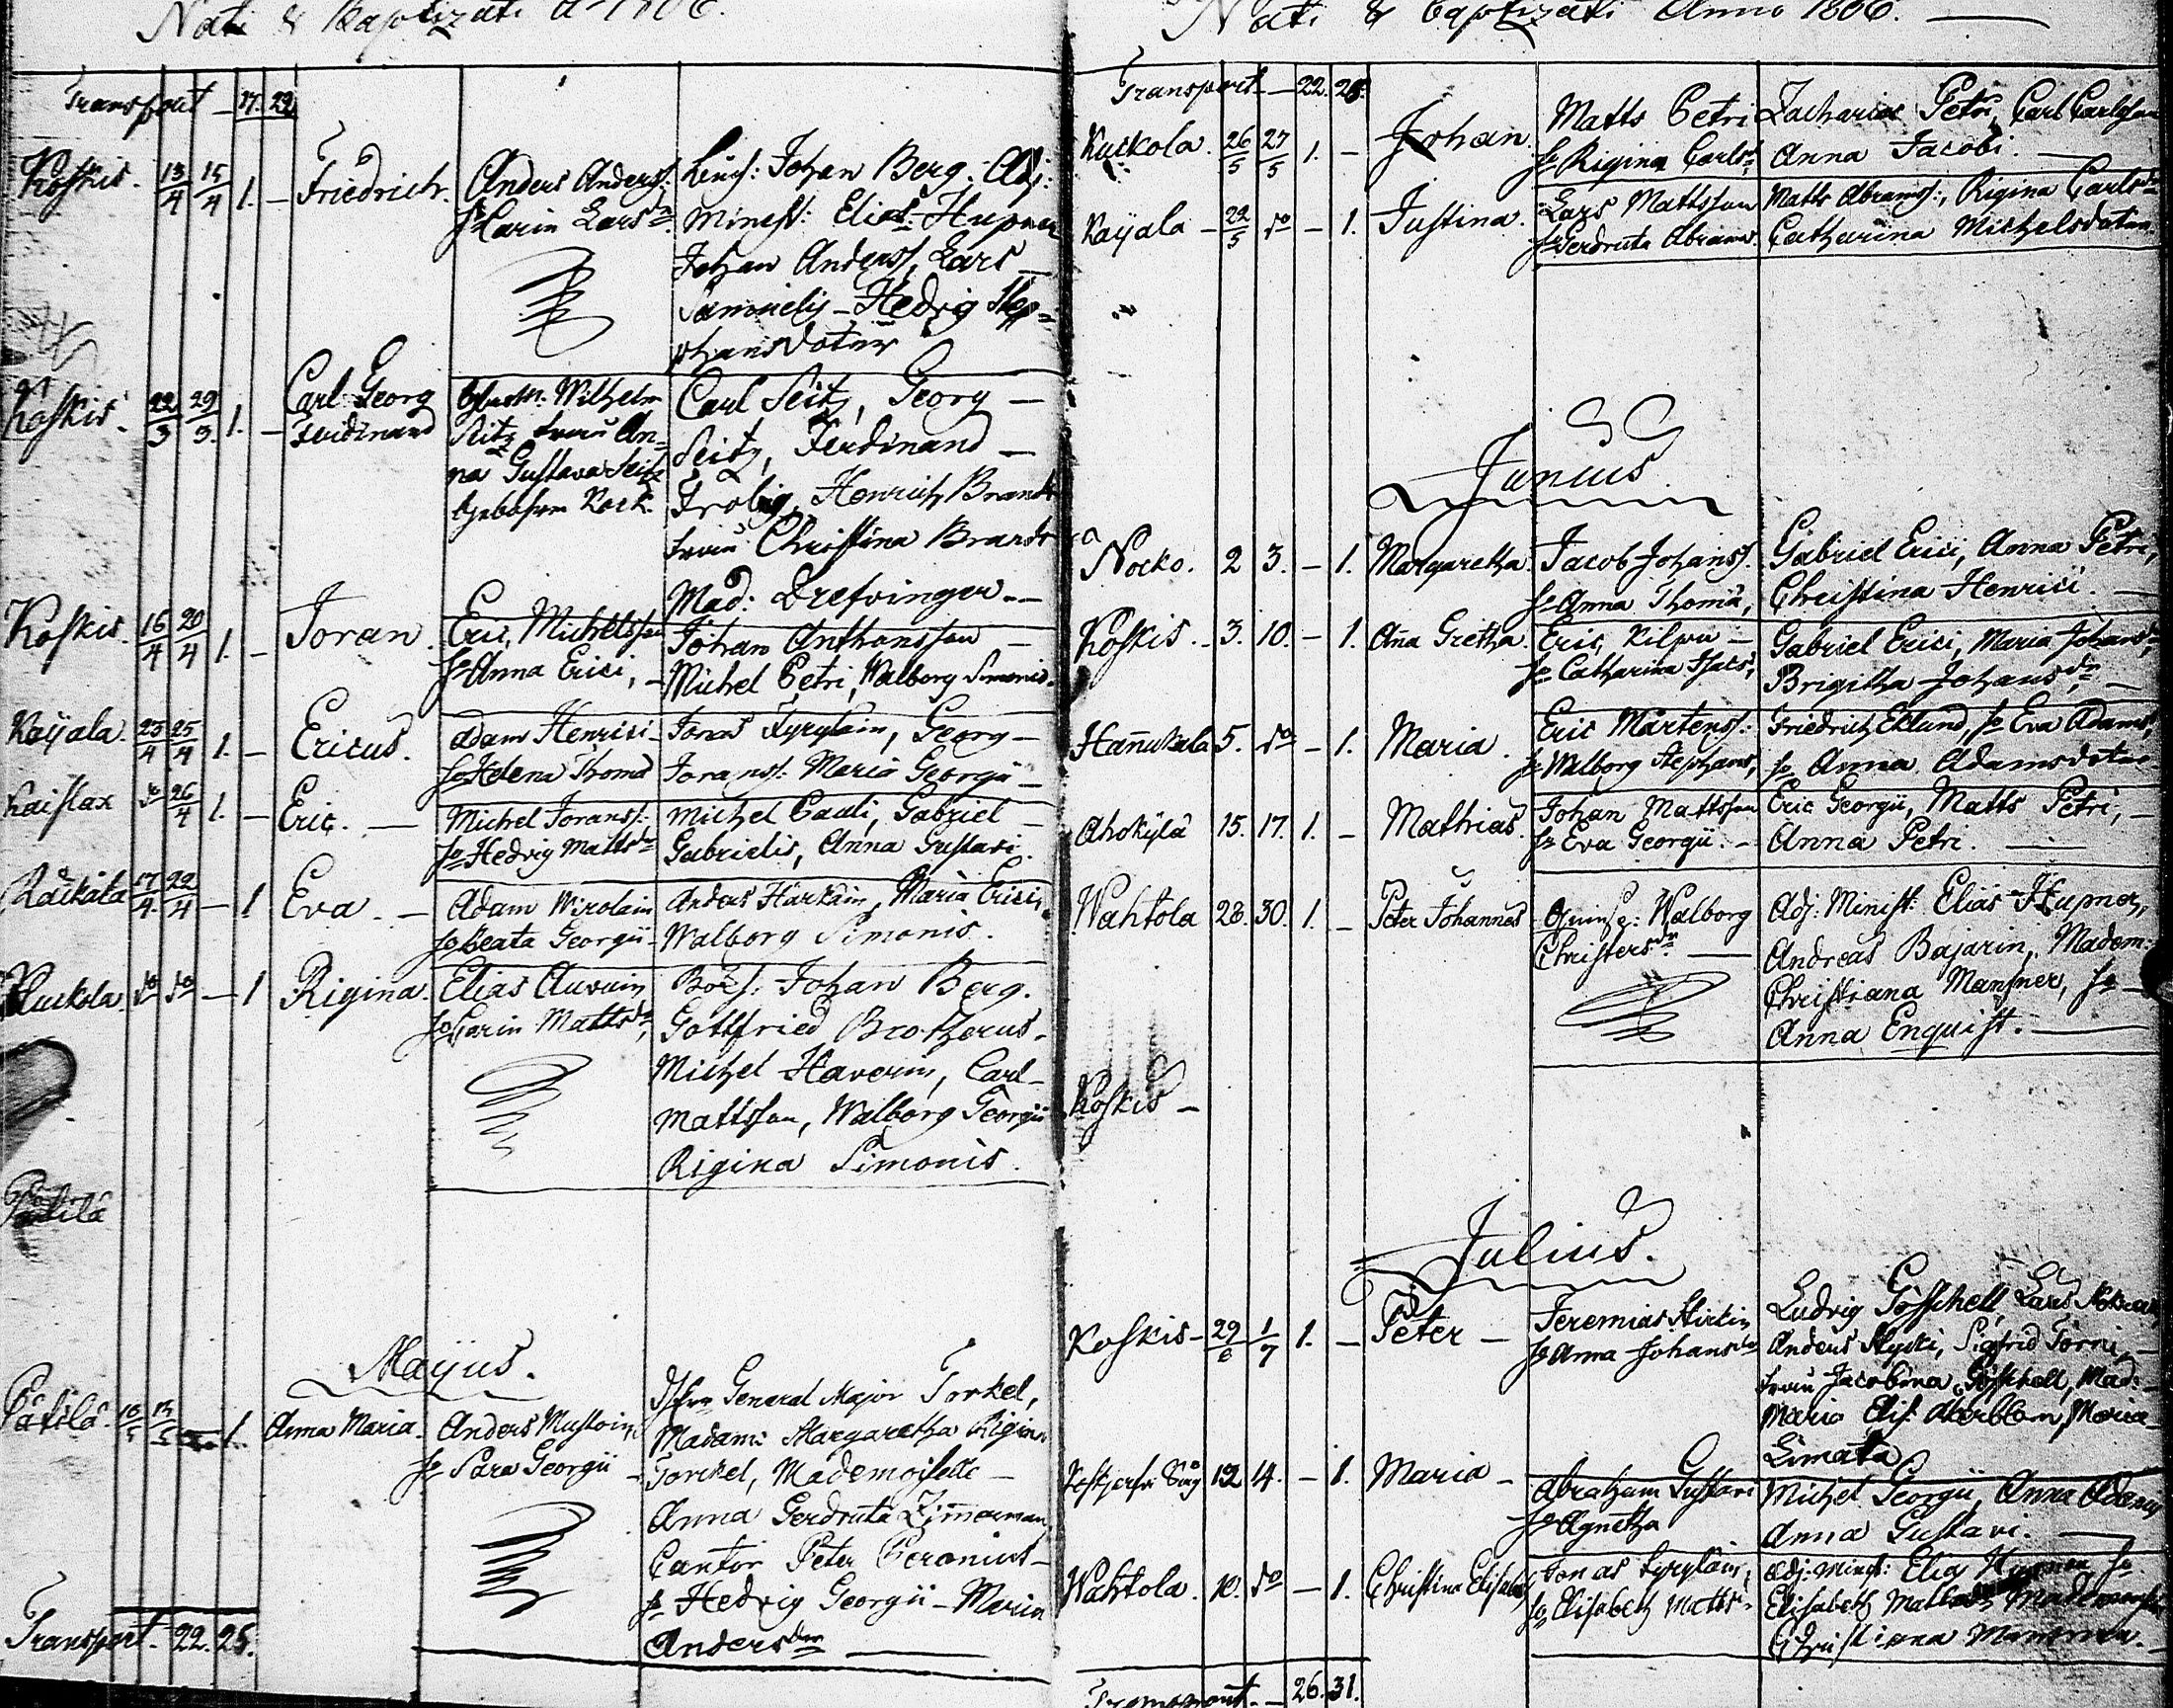 Nati & Baptizati Ao 1806.
Transport - 17. 22
Koskis. 13/4 15/4 1. - Friedrich. Anders Anderss:
hu Carin Larsdr.
Johan Berg. Adj:
Minist: Elias Hupner
Johan Anderss, Lars
Samuelis - Hedvig Step=
phansdotter
Koskis. 22/3 29/3. 1. - Carl Georg
Ferdinand
Wilhelm
Seitz Frau An=
na Gustava Seitz
Gebohren Kock.
Carl Seitz, Georg -
Seitz, Ferdinand -
Frolig, Henrich Brandt
Frau Christina Brandt
Mad: Drefvinger. -
Koskis. 16/4 20/4 1. - Joran. Eric Michelsson
hu Anna Erici, -
Johan Anthonsson -
Michel Petri, Walborg Simonis.
Kayala. 23/4 25/4 1. - Ericus. Adam Henrici -
hu Helena Thomæ
Jonas Kyrylain, Georg -
Jorans: Maria Georgii -
Kaislax do 26/4 1. - Eric. - Michel Joranss:
hu Hedvig Mattsdr
Michel Pauli, Gabriel -
Gabrielis, Anna Gustavi.
Räikälä 17/4 22/4 - 1 Eva. - Adam Wirolain
hu Beata Georgii -
Anders Harkäin, Maria Erici,
Walborg Simonis.
Kuckola. do do - 1 Rigina. Elias Auvuin
hu Carin Mattsdr,
Johan Berg.
Gottfried Brotherus.
Michel Haverin, Carl -
Mattsson, Walborg Georgii
Rigina Simonis.
Majus.
Pätilä. 1. Anna Maria. Anders Mustoin,
hu Sara Georgii -
General Major Torkel,
Madame Margaretha Rigina
Torckel, Mademoiselle -
Anna Gerdruta Zimmerman
Cantor Peter Ceronius -
hu Hedvig Georgii - Maria
Andersdr
Transport - 22. 25.
Nati & Baptizati Anno 1806.
Transport - 22. 25.
Kuckola. 26/5 27/5 1. - Johan. Matts Petri
hu Rigina Carlsd:
Zacharias Petri, Carl Carlsson
Anna Jacobi.
Kayala - 22/5 do - 1. Justina. Lars Mattsson
hu Gerdruta Abrams.
Matts Abrams:, Rigina Carlsdr
Catharina Michelsdotter
Junius
Nocko. 2 3. - 1. Margaretha. Jacob Johanss.
hu Anna Thomæ,
Gabriel Erici, Anna Petri,
Christina Henrici.
Koskis. - 3. 10. - 1. Ana Gretha. Eric Kilpu -
hu Catharina Isacs,
Gabriel Erici, Maria Johansdr,
Brigitha Johansdr,
Hañukala 5. do - 1. Maria. Eric Mårtenss:
hu Walborg Stephans,
Friedrich Eklund, hu Eva Adams,
hu Anna Adamsdotter
Ahokylä 15. 17. 1. - Mathias. Johan Mattsson
hu Eva Georgii. -
Eric Georgii, Matts Petri, -
Anna Petri.
Wahtola 28. 30. 1. - Peter Johannes Walborg
Christersdr.
Adj: Minist: Elias Hupner,
Andreas Bajarin, Madem:
Christiana Mansner, hu -
Anna Enquist.
Koskis -
Julius.
Koskis - 29/6 1/7 1. - Peter - Jeremias Hirkin
hu Anna Johansdr
Ludvig Göschell, Lars
Anders Hycki, Sigfrid Törni, -
Frau Jacobina Göschell, Mad: -
Maria Elis. Åkerblom, Maria
Limata
12 14. - 1. Maria - Abraham Gustavi
hu Agnetha
Michel Georgii, Anna Adams
Anna Gustavi.
Wahtola. 10. do - 1. Christina Elisabeth Jonas Kyrylain,
hu Elisabeth Mattsdr.
Adj: Minist: Elias Hupner hu
Elisabeth
Christiana
Transport. - 26. 31.